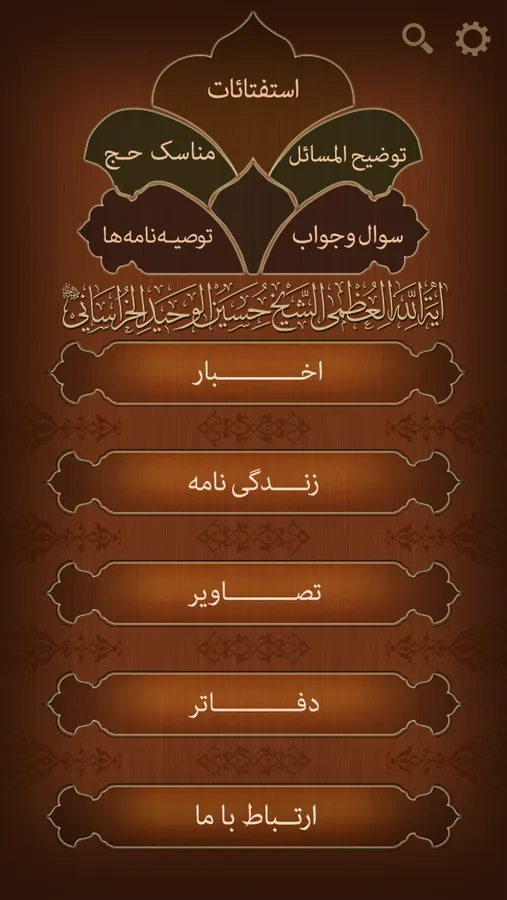 استفتائات
توضیح المسائل
مناسک حج
سوال و جواب
توصیه‌نامه‌ها
آیة الله العظمی الشیخ حسین الوحید الخراسانی
اخبار
زندگی نامه
تصاویر
دفاتر
ارتباط با ما